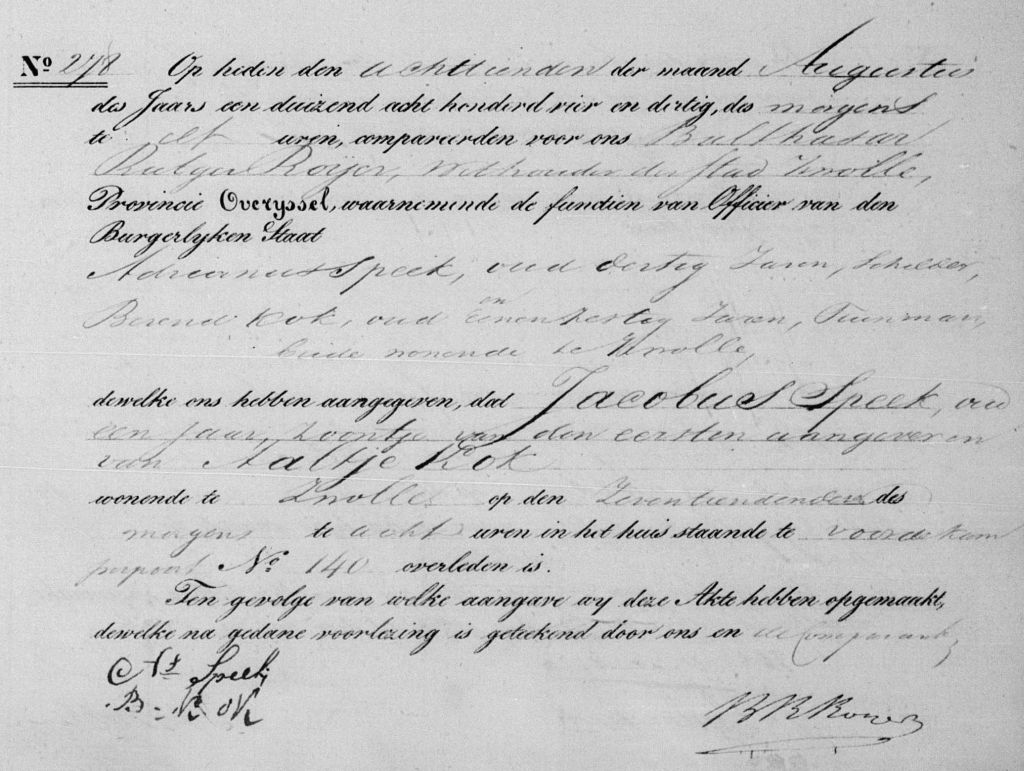 No 278 Op heden den achttienden der maand Augustus
des Jaars een duizend acht honderd vier en dertig, des morgens
te elf uren, compareerden voor ons Balthasar
Rutger Roijer, Wethouder der stad Zwolle,
Provincie Overyssel, waarnemende de functien van Officier van den
Burgerlyken Staat
Adrianus Speek, oud dertig Jaren, Schilder,
en
Berend Kok, oud eenen zestig Jaren, Tuinman,
beide wonende te Zwolle,
dewelke ons hebben aangegeven, dat Jacobus Speek, oud
een jaar, zoontje van den eersten aangever en
van Aaltje Kok
wonende te Zwolle op den Zeventienden dezer des
morgens te acht uren in het huis staande te voor de kam
perpoort No 140 overleden is.
Ten gevolge van welke aangave wy deze Akte hebben opgemaakt,
dewelke na gedane voorlezing is geteekend door ons en de Comparanten
As Speek
B. Kok
B R Roijer